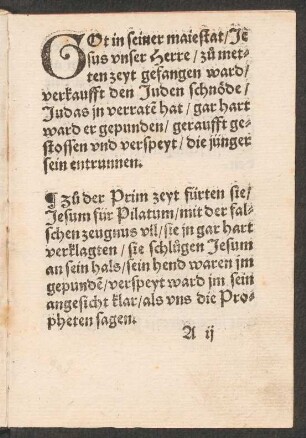 GOt in seiner maiestat/Je
sus vnser Herre/zů met-
ten zeyt gefangen ward/
verkaufft den Juden schnöde/
Judas in verratē hat/gar hart
ward er gepunden/geraufft ge-
stossen vnd verspeyt/die jünger
sein entrunnen.
¶ zů der Prim zeyt fürten sie/
Jesum für Pilatum/mit der fal-
schen zeugnus vil/sie jn gar hart
verklagten/sie schlůgen Jesum
an sein hals/sein hend waren jm
gepundē/verspeyt ward jm sein
angesicht klar/als vns die Pro-
pheten sagen.
A ij